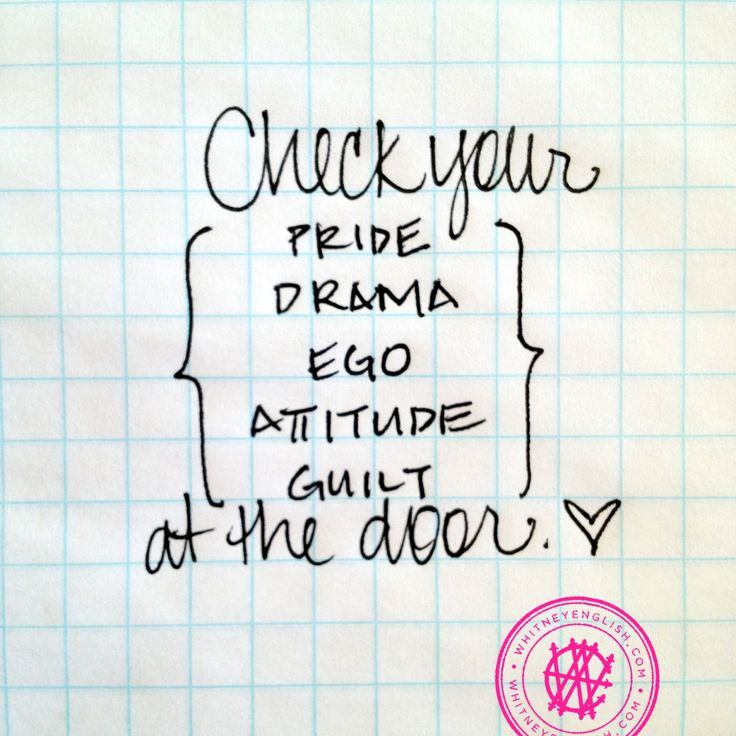 Check your
PRIDE
DRAMA
EGO
ATTITUDE
GUILT
at the door.
• WHITNEYENGLISH.COM • WHITNEYENGLISH.COM